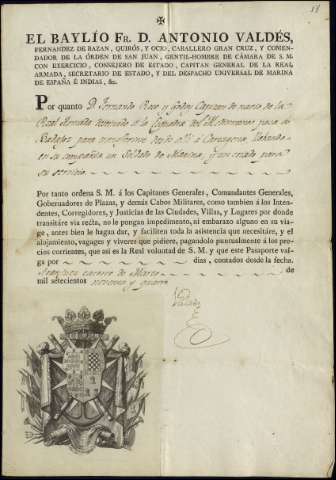 ✠
EL BAYLÍO FR. D. ANTONIO VALDÉS,
FERNANDEZ DE BAZAN, QUIRÓS, Y OCIO, CABALLERO GRAN CRUZ, Y COMEN-
DADOR DE LA ÓRDEN DE SAN JUAN, GENTIL-HOMBRE DE CÁMARA DE S. M.
CON EXERCICIO, CONSEJERO DE ESTADO, CAPITAN GENERAL DE LA REAL
ARMADA, SECRETARIO DE ESTADO, Y DEL DESPACHO UNIVERSAL DE MARINA
DE ESPAÑA É INDIAS, &c.
Por quanto D. Fernando Capitan de navio de la
Real Armada destinado á la del pasa de
Badajoz para transferirse desde allí á Cartagena, llevando
en su compañia un Soldado de Marina, y un criado para
su servicio
Por tanto ordena S. M. á los Capitanes Generales, Comandantes Generales,
Gobernadores de Plazas, y demás Cabos Militares, como tambien á los Inten-
dentes, Corregidores, y Justicias de las Ciudades, Villas, y Lugares por donde
transitáre via recta, no le pongan impedimento, ni embarazo alguno en su via-
ge, antes bien le hagan dar, y faciliten toda la asistencia que necesitáre, y el
alojamiento, vagages y víveres que pidiere, pagandolo puntualmente á los pre-
cios corrientes, que así es la Real voluntad de S. M. y que este Pasaporte val-
ga por dias, contados desde la fecha.
Aranjuez catorce de Marzo de
mil setecientos noventa y quatro
Valdés